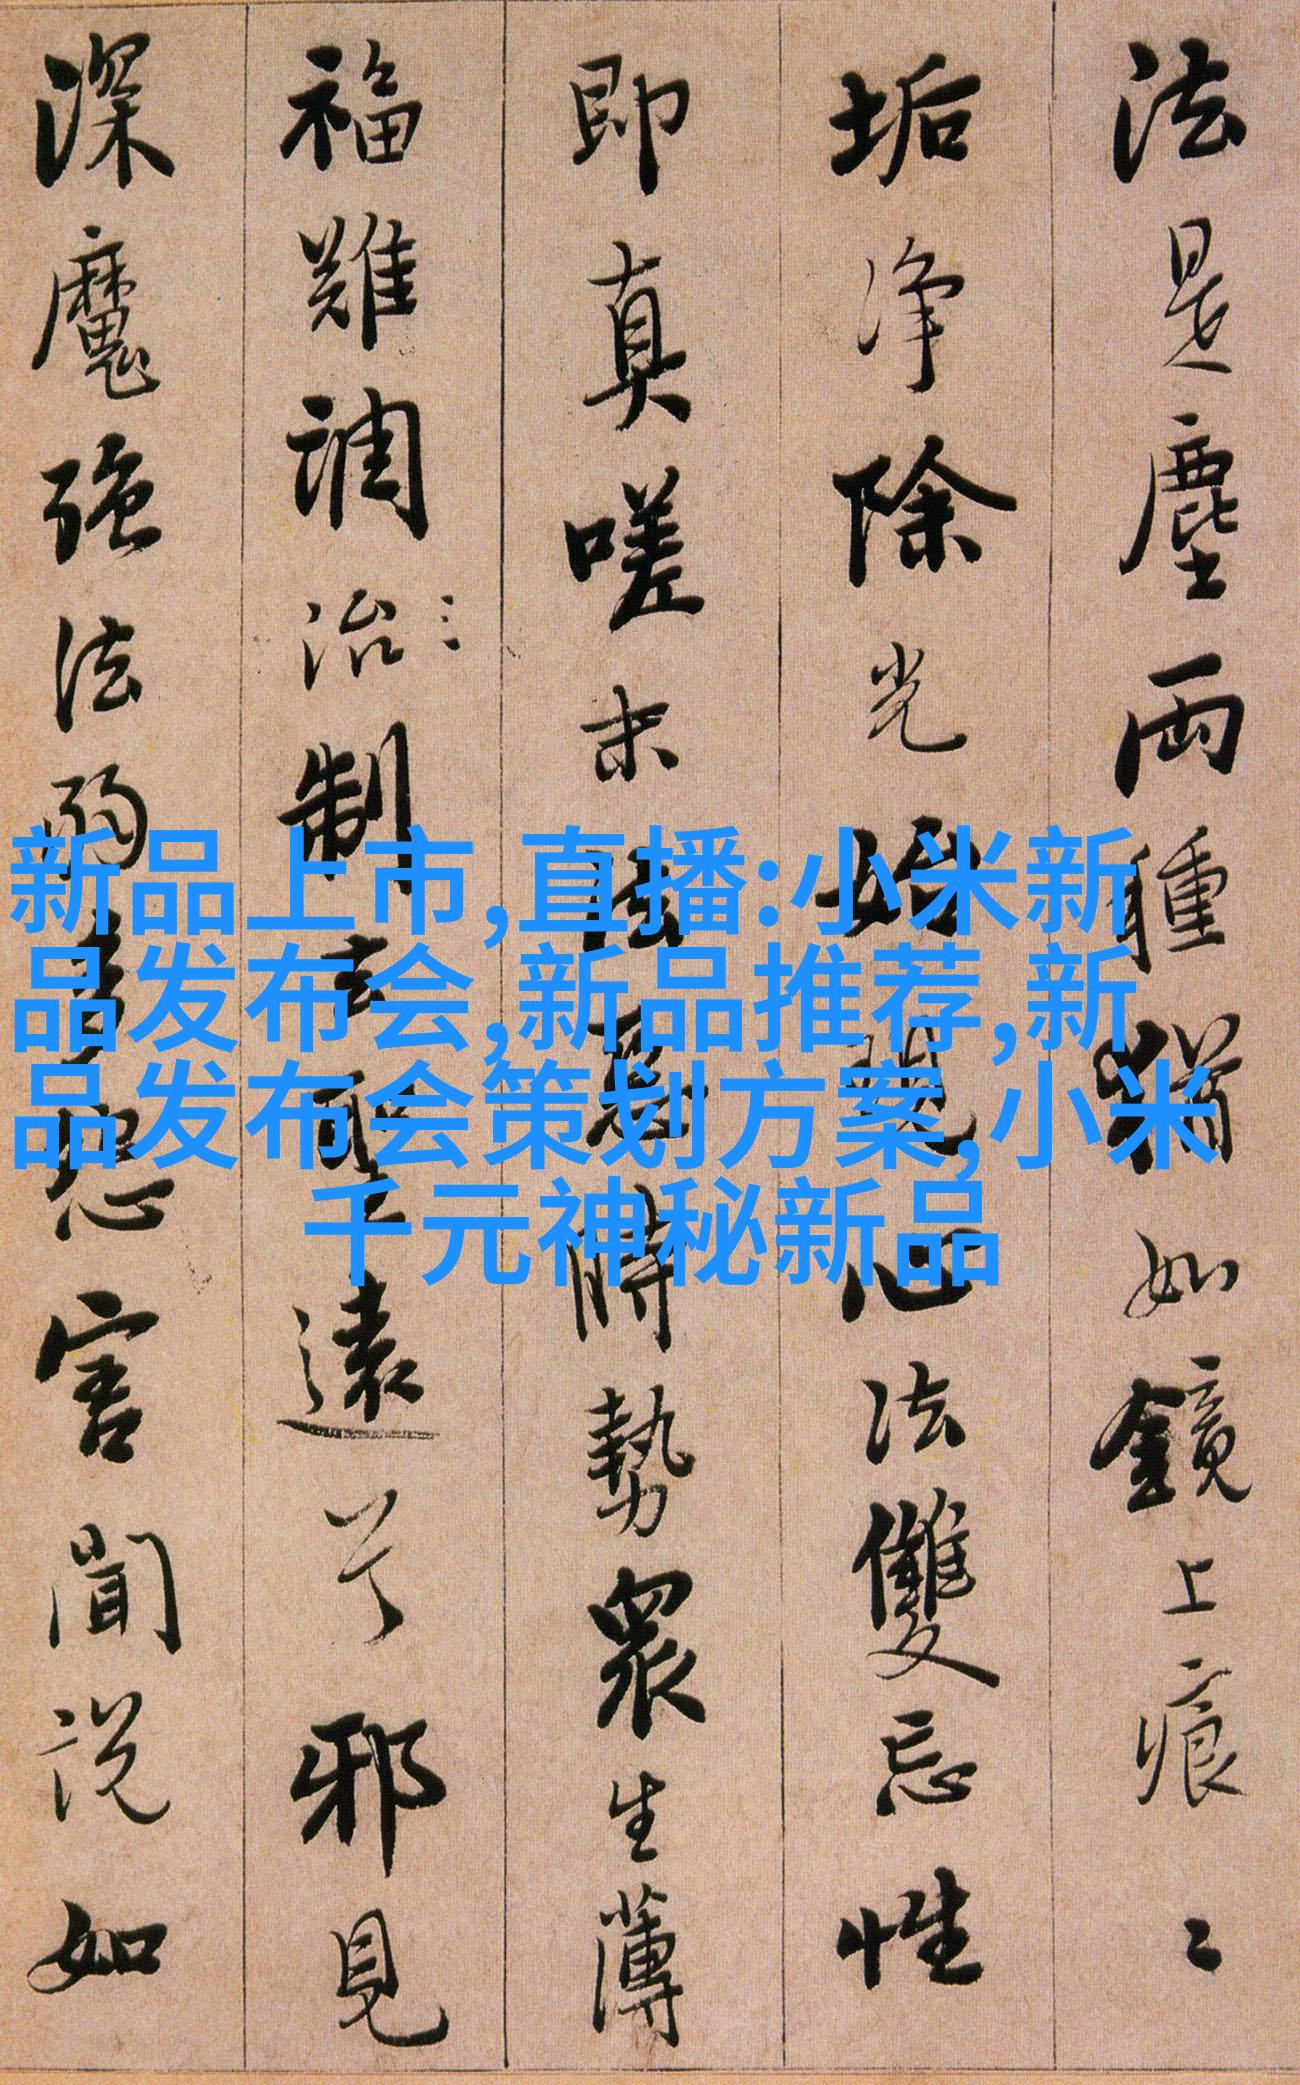 法是塵兩種猶如鏡上痕〻
垢淨除光始現心法雙忘性
即真嗟末法惡時勢眾生薄
福難調治制去聖遠兮邪見
深魔強法弱多恐害聞說如
新品上市,直播:小米新
品发布会,新品推荐,新
品发布会策划方案,小米
千元神秘新品